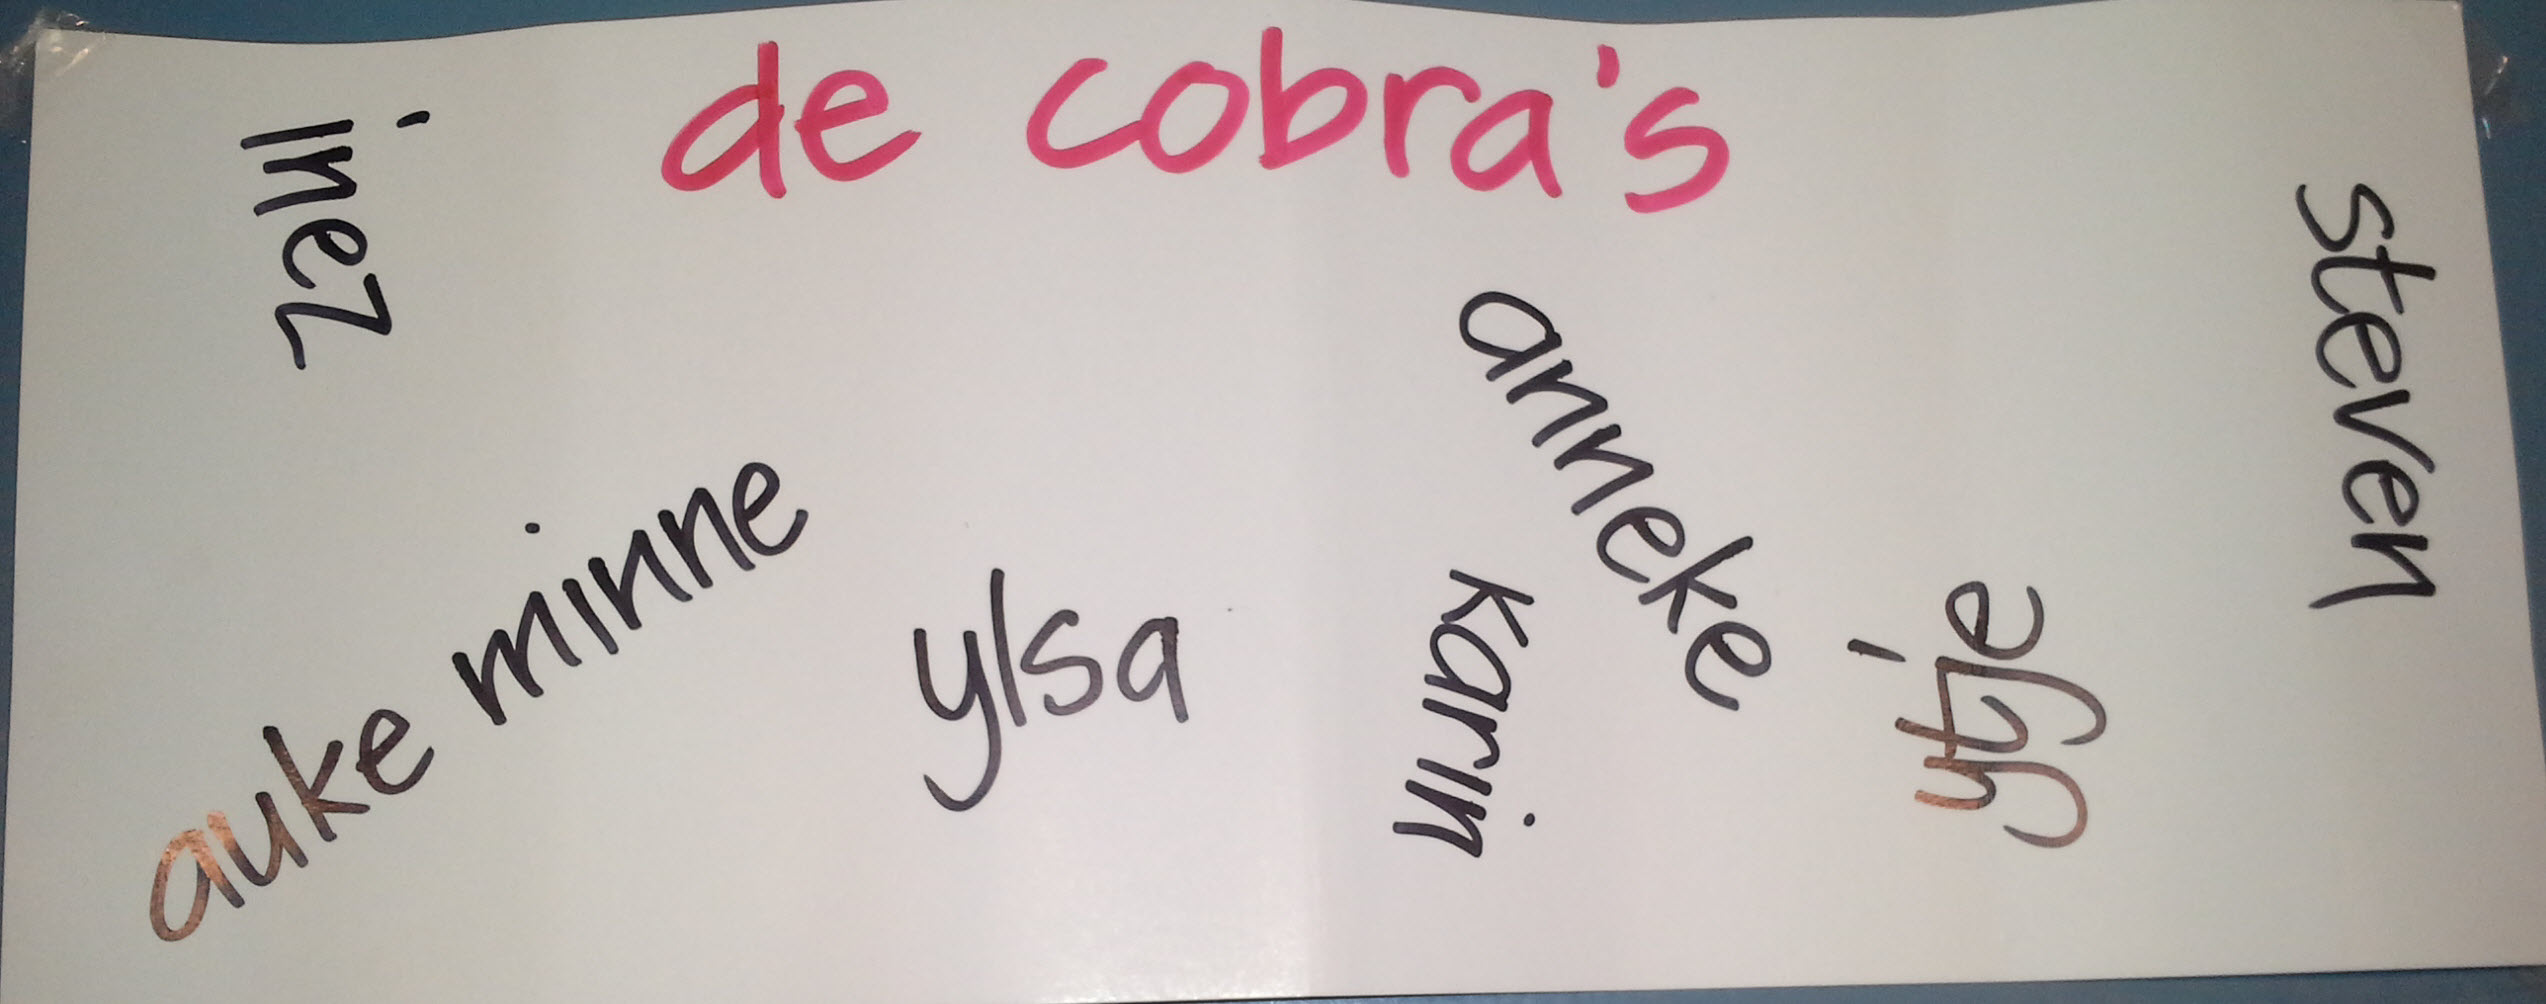 de cobra's
inez
steven
anneke
auke minne
ylsa
karin
ytje